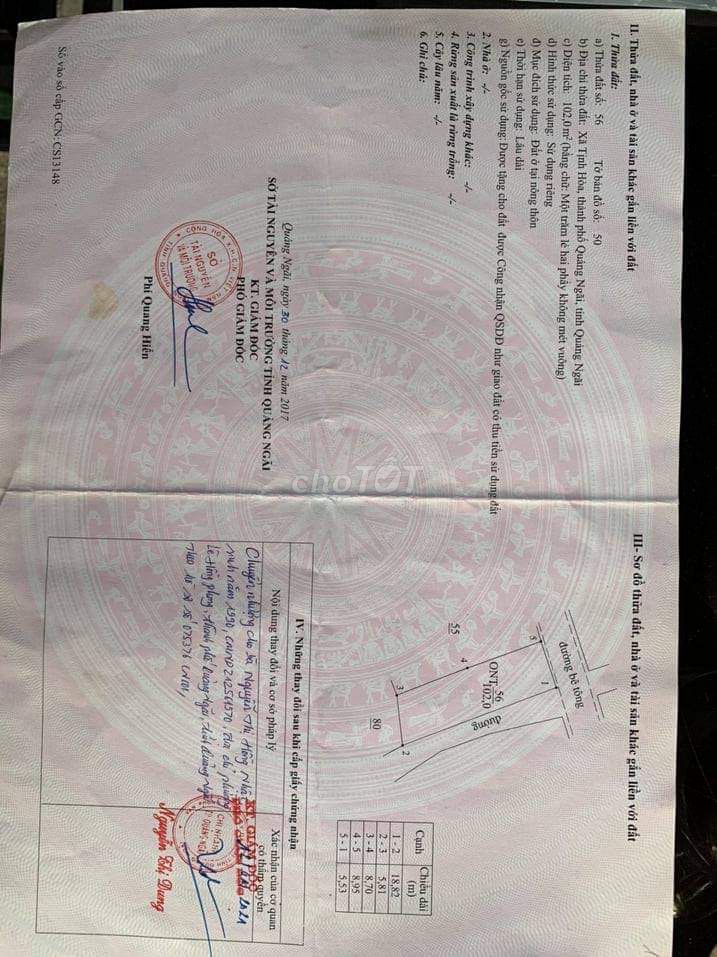 II. Thửa đất, nhà ở và tài sản khác gắn liền với đất
1. Thửa đất:
a) Thửa đất số: 56 Tờ bản đồ số: 50
b) Địa chỉ thửa đất: Xã Tịnh Hòa, thành phố Quảng Ngãi, tỉnh Quảng Ngãi
c) Diện tích: 102,0 m² (bằng chữ: Một trăm lẻ hai phẩy không mét vuông)
d) Hình thức sử dụng: Sử dụng riêng
đ) Mục đích sử dụng: Đất ở tại nông thôn
e) Thời hạn sử dụng: Lâu dài
g) Nguồn gốc sử dụng: Được tặng cho đất được Công nhận QSDĐ như giao đất có thu tiền sử dụng đất
2. Nhà ở: -/-
3. Công trình xây dựng khác: -/-
4. Rừng sản xuất là rừng trồng: -/-
5. Cây lâu năm: -/-
6. Ghi chú:
Quảng Ngãi, ngày 30 tháng 12 năm 2017
SỞ TÀI NGUYÊN VÀ MÔI TRƯỜNG TỈNH QUẢNG NGÃI
KT. GIÁM ĐỐC
PHÓ GIÁM ĐỐC
SỞ
TÀI NGUYÊN
VÀ MÔI TRƯỜNG
Phi Quang Hiển
Số vào sổ cấp GCN: CS13148
III- Sơ đồ thửa đất, nhà ở và tài sản khác gắn liền với đất
đường bê tông
5
1
ONT 56
102.0
đường
4
55
3
2
80
Cạnh Chiều dài (m)
1 - 2 18,82
2 - 3 5,81
3 - 4 8,70
4 - 5 8,95
5 - 1 5,53
IV. Những thay đổi sau khi cấp giấy chứng nhận
Nội dung thay đổi và cơ sở pháp lý
Xác nhận của cơ quan
có thẩm quyền
Chuyển nhượng cho bà Nguyễn Thị Hồng
sinh năm 1990, CMND 212561570, địa chỉ phường
Lê Hồng Phong, thành phố Quảng Ngãi, tỉnh Quảng Ngãi
Theo hồ sơ số 075376
2021
CHI NHÁNH
Nguyễn Thị Dung
choTOT